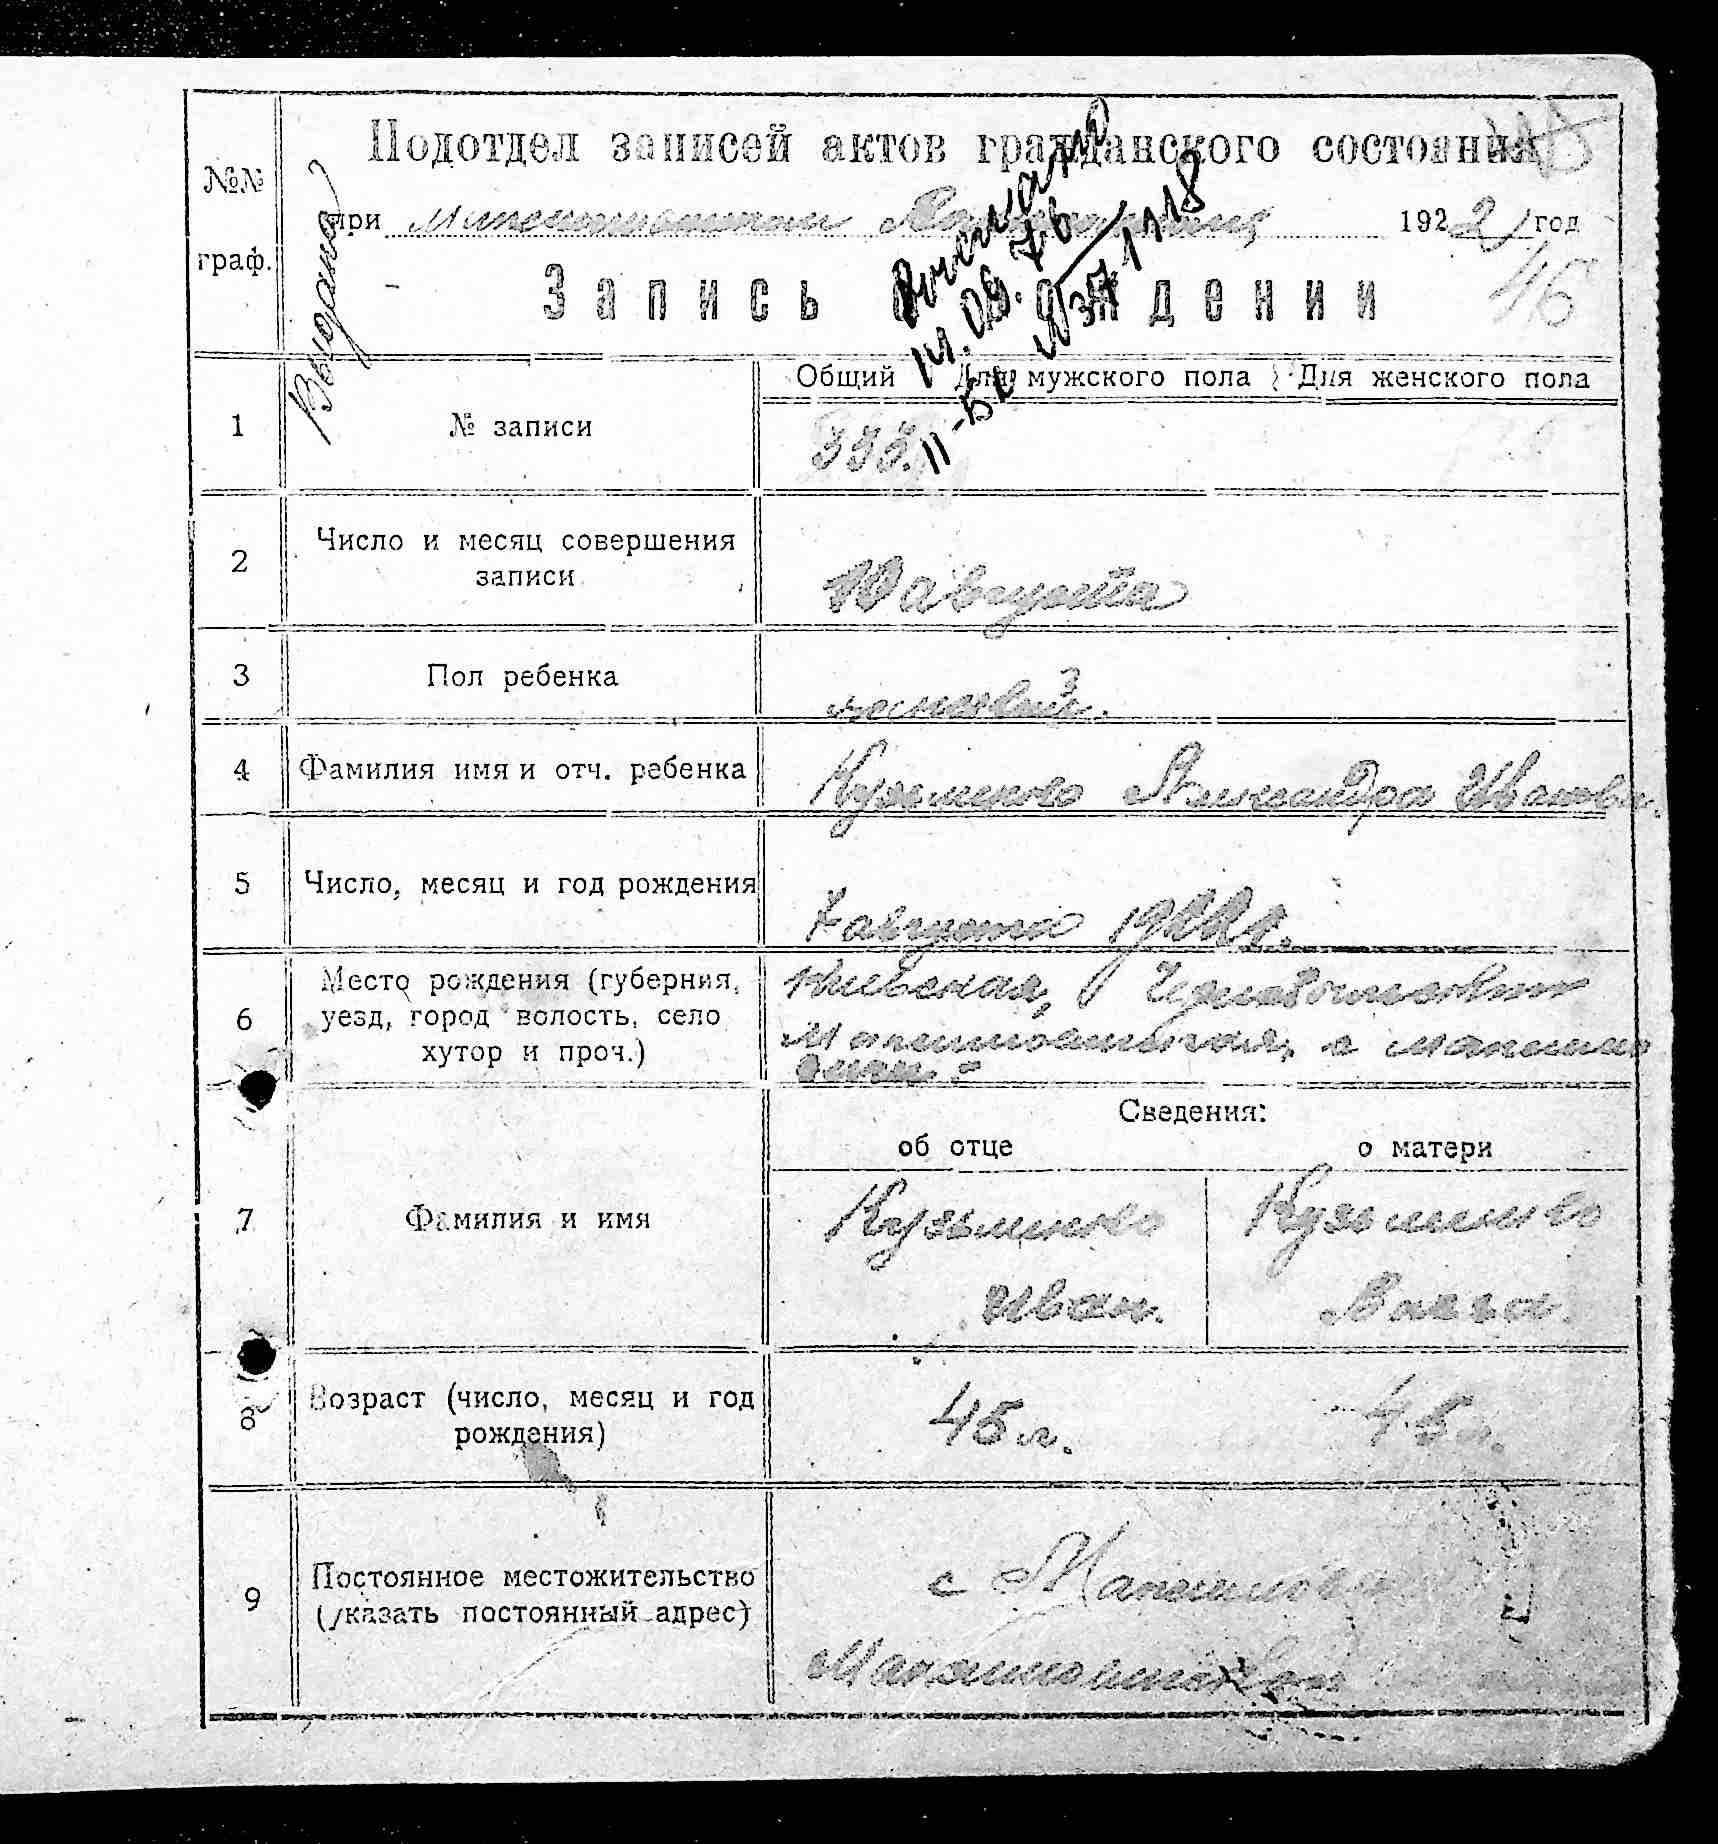 Подотдел записей актов гражданского состояния
№№
граф.
при 1922 год
Выдано
Запись о рождении
46
14.09.76
II-БК № 371118
Общий Для мужского пола Для женского пола
1 № записи 333.
2 Число и месяц совершения
записи
10 августа
3 Пол ребенка
женский.
4 Фамилия имя и отч. ребенка Кузьменко Александра Иванов.
5 Число, месяц и год рождения 7 августа 1922 г.
6 Место рождения (губерния,
уезд, город волость, село
хутор и проч.)
Киевская,
Сведения:
об отце о матери
7 Фамилия и имя
Кузьменко Кузьменко
Иван.
8 Возраст (число, месяц и год
рождения)
45 л. 45 л.
9 Постоянное местожительство
(указать постоянный адрес)
с